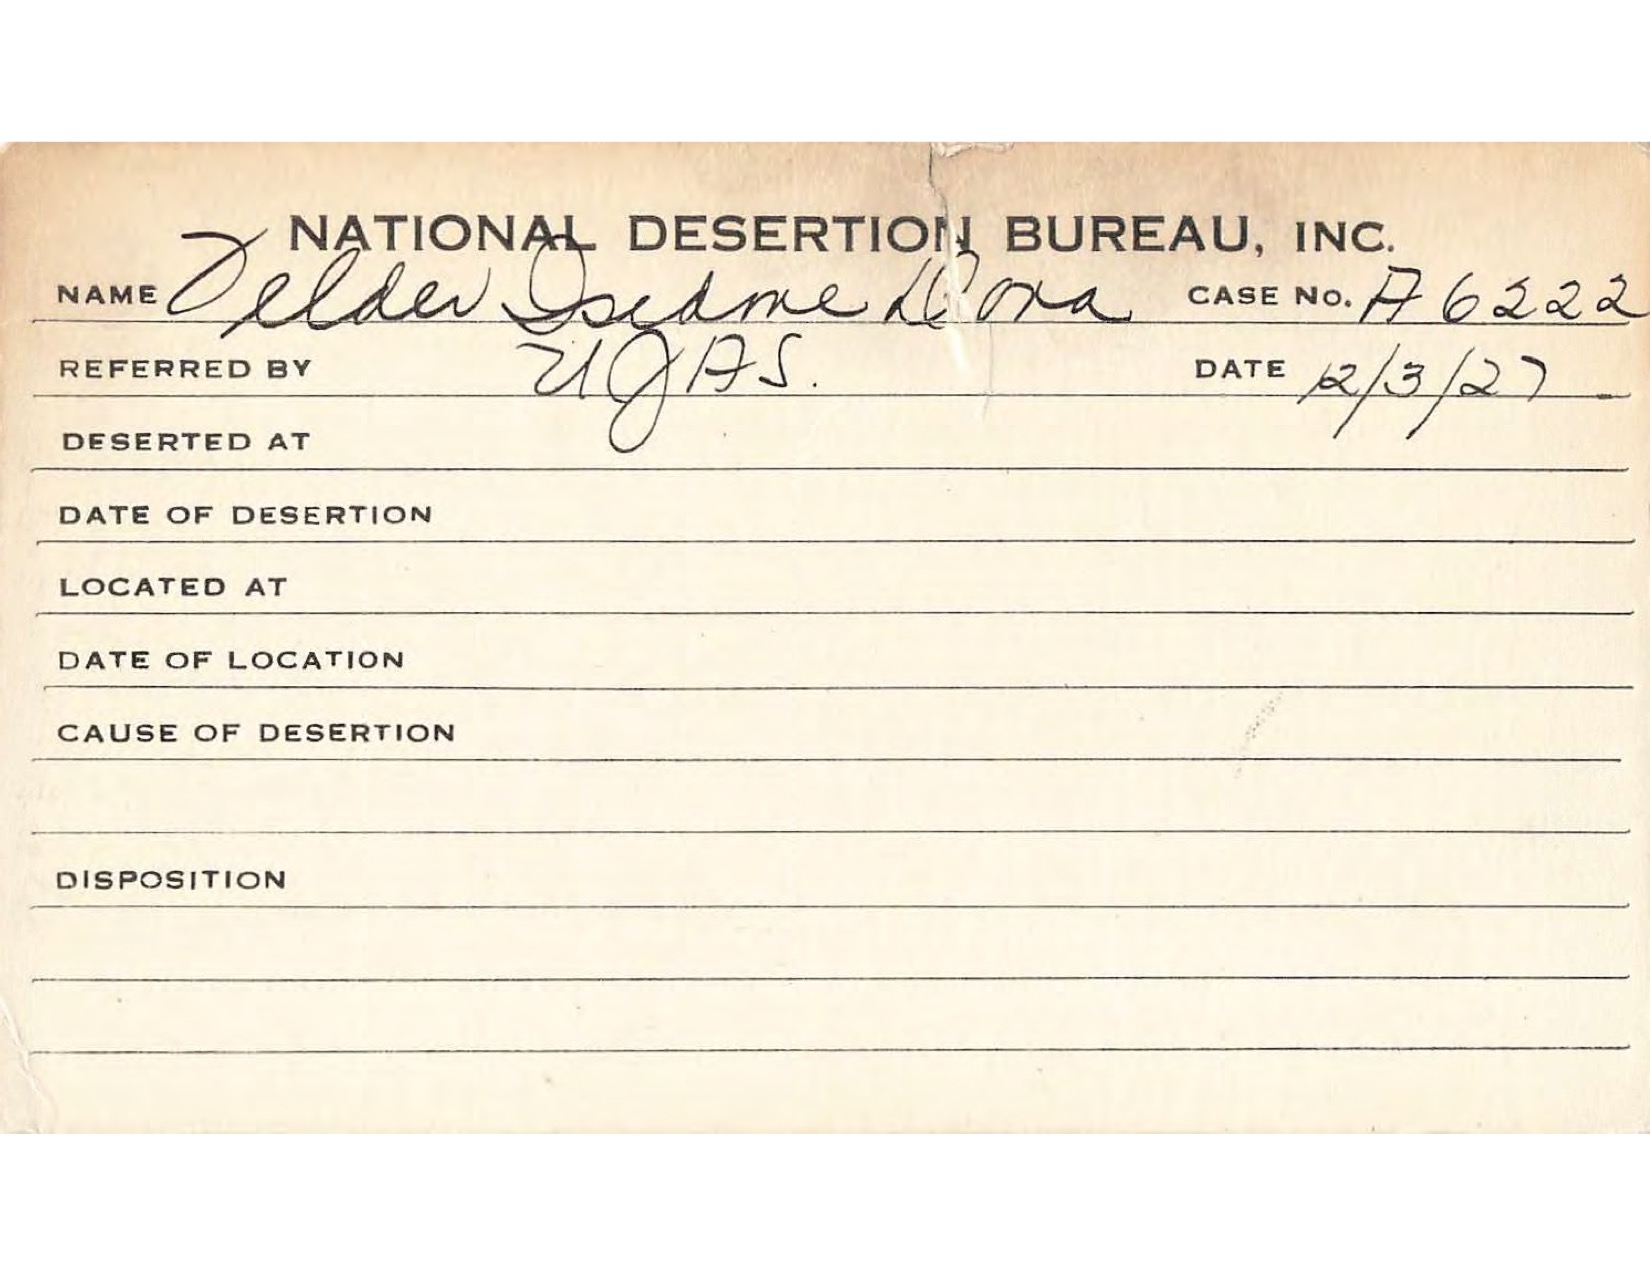 NATIONAL DESERTION BUREAU, INC.
NAME Felder Isidore Dora CASE NO. A6222
REFERRED BY UJAS. DATE 12/3/27
DESERTED AT
DATE OF DESERTION
LOCATED AT
DATE OF LOCATION
CAUSE OF DESERTION
DISPOSITION